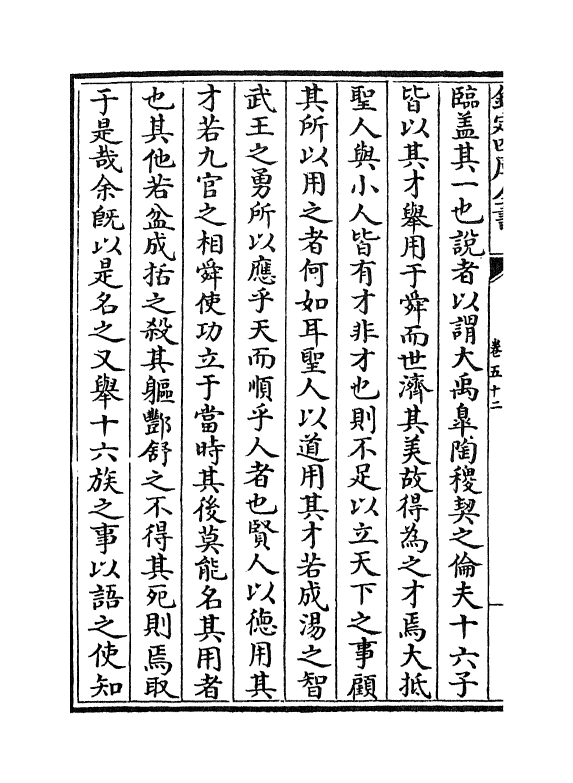 欽定四庫全書
卷五十二
臨盖其一也說者以謂大禹臯陶稷契之倫夫十六子
皆以其才舉用于舜而世濟其美故得為之才焉大抵
聖人與小人皆有才非才也則不足以立天下之事顧
其所以用之者何如耳聖人以道用其才若成湯之智
武王之勇所以應乎天而順乎人者也賢人以徳用其
才若九官之相舜使功立于當時其後莫能名其用者
也其他若盆成括之殺其軀酆舒之不得其死則焉取
于是哉余旣以是名之又舉十六族之事以語之使知